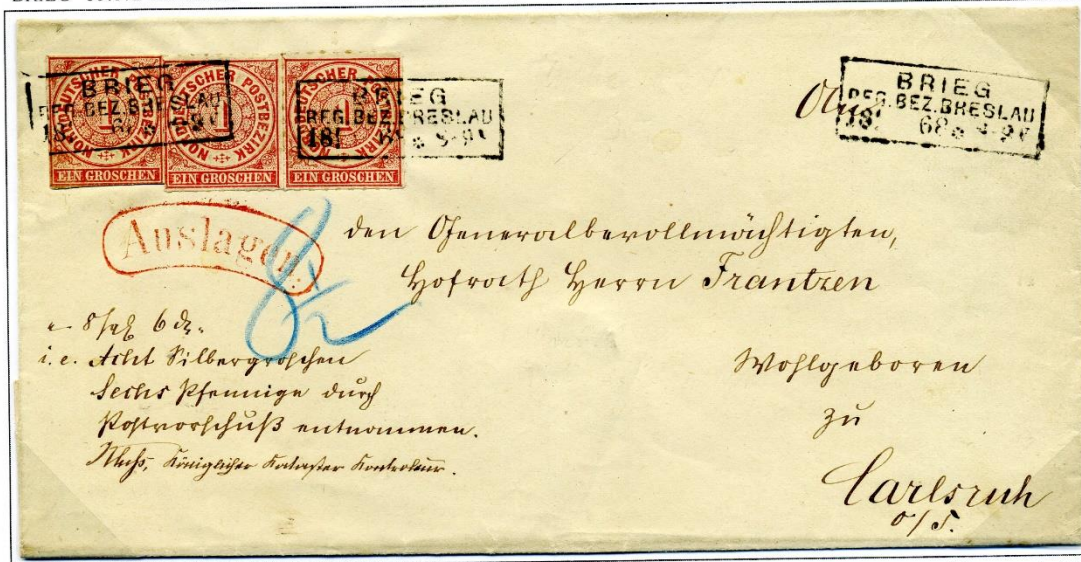 NORDDEUTSCHER POSTBEZIRK
1
EIN GROSCHEN
NORDDEUTSCHER POSTBEZIRK
1
EIN GROSCHEN
NORDDEUTSCHER POSTBEZIRK
1
EIN GROSCHEN
BRIEG
REG.BEZ.BRESLAU
BRIEG
REG.BEZ.BRESLAU
BRIEG
REG.BEZ.BRESLAU
68
Auslagen.
8½
den Generalbevollmächtigten,
Hofrath Herrn Frantzen
Wohlgeboren
zu
Carlsruh
o/S.
i.e. Acht Silbergroschen
Sechs Pfennige durch
Postvorschuß entnommen.
Königlicher Kataster Kontroleur.